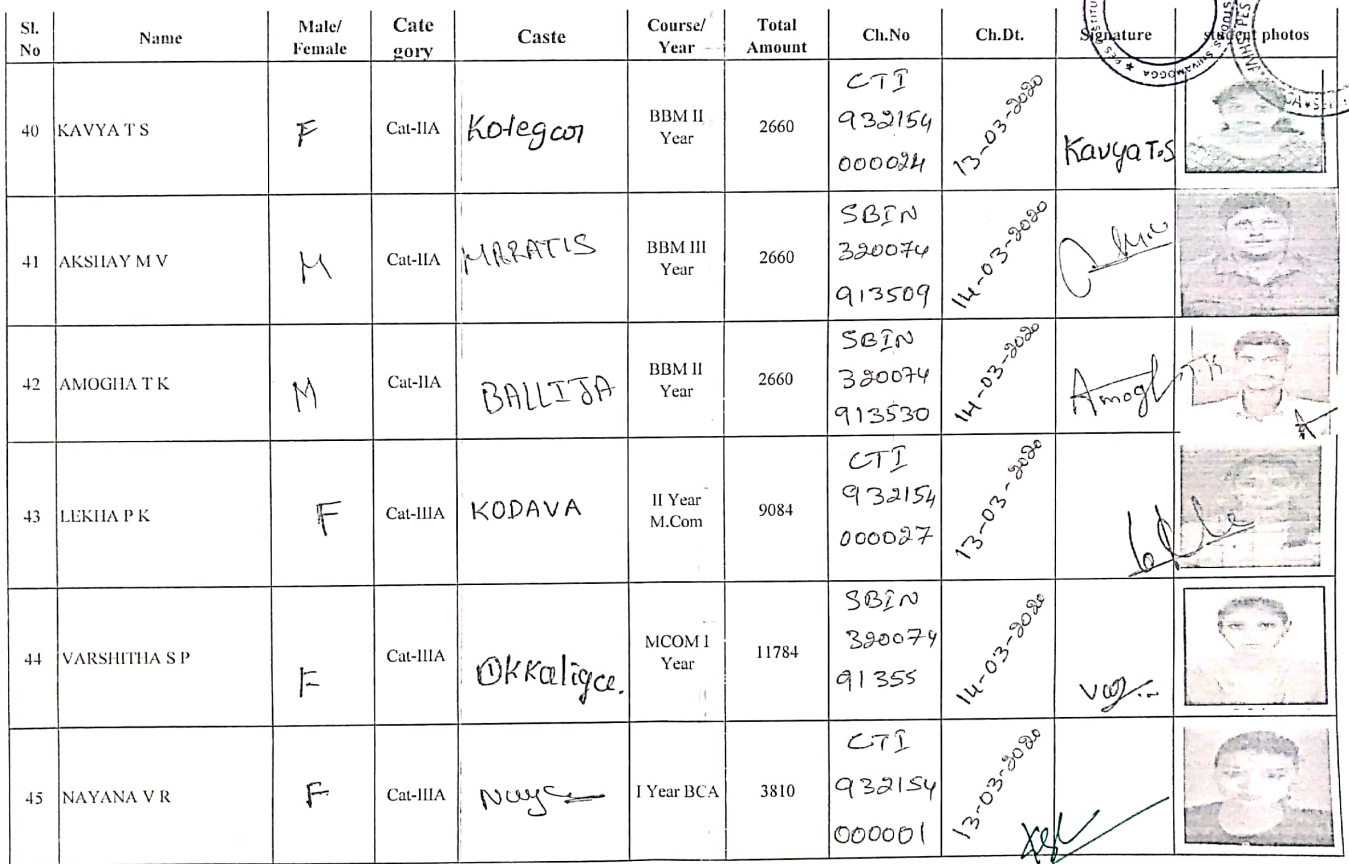 Sl. No Name Male/ Female Cate gory Caste Course/ Year Total Amount Ch.No Ch.Dt. Signature student photos
PES INSTITU
SHIVAMOGGA
40 KAVYA T S F Cat-IIA Kotegar BBM II Year 2660 CTI 932154 000024 13-03-2020 Kavya T.S
41 AKSHAY M V M Cat-IIA MARATIS BBM III Year 2660 SBIN 320074 913509 14-03-2020
42 AMOGHA T K M Cat-IIA BALLIJA BBM II Year 2660 SBIN 320074 913530 14-03-2020 Amogh T K
43 LEKHA P K F Cat-IIIA KODAVA II Year M.Com 9084 CTI 932154 000027 13-03-2020
44 VARSHITHA S P F Cat-IIIA Okkaliga. MCOM I Year 11784 SBIN 320074 91355 14-03-2020
45 NAYANA V R F Cat-IIIA I Year BCA 3810 CTI 932154 000001 13-03-2020